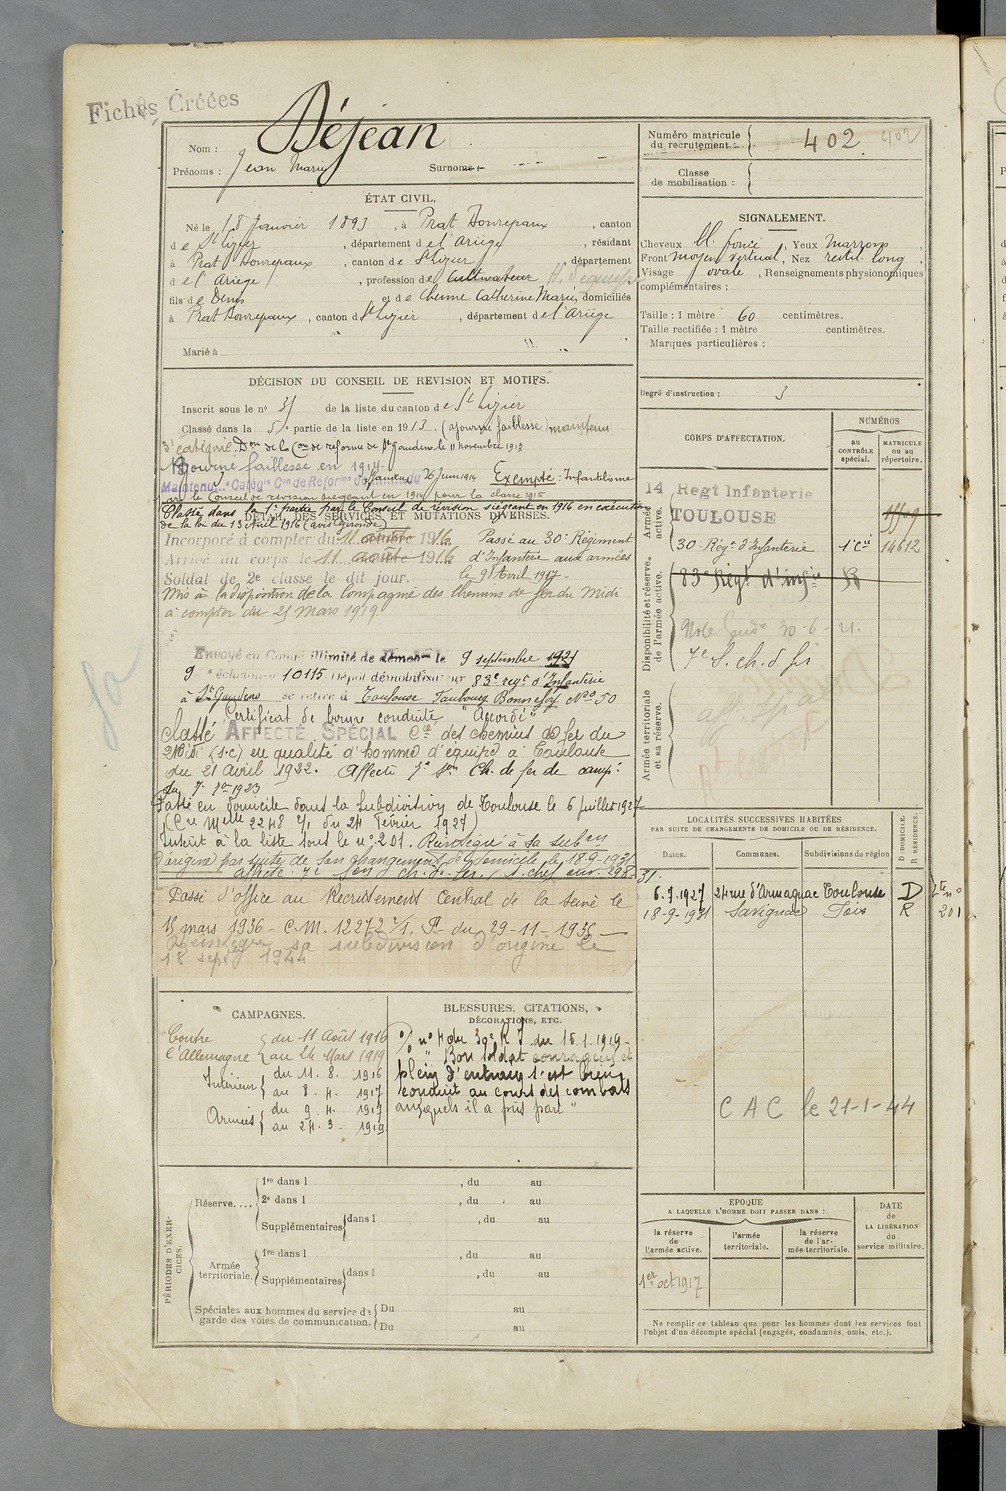 Fiches Créées
Nom : Déjean
Prénoms : Jean Marie Surnoms :
Numéro matricule du recrutement : 402 402
Classe de mobilisation :
ÉTAT CIVIL.
Né le 18 Janvier 1893, à Prat Bonrepaux, canton
de St Lizier, département de l'Ariège, résidant
à Prat Bonrepaux, canton de St Lizier, département
de l'Ariège, profession de Cultivateur
fils de Denis et de Chenne Catherine Marie, domiciliés
à Prat Bonrepaux, canton de St Lizier, département de l'Ariège
Marié à
SIGNALEMENT.
Cheveux bl foncé, Yeux Marrons
Front moyen vertical, Nez rectil. long
Visage ovale, Renseignements physionomiques
complémentaires :
Taille : 1 mètre 60 centimètres.
Taille rectifiée : 1 mètre centimètres.
Marques particulières :
Degré d'instruction : 3
DÉCISION DU CONSEIL DE REVISION ET MOTIFS.
Inscrit sous le n° 31 de la liste du canton de St Lizier
Classé dans la 5e partie de la liste en 1913. (ajourné faiblesse) maintenu
3e catégorie. Don de la Con de réforme de St Gaudens le 11 novembre 1913
Ajourné faiblesse en 1914
26 Juin 1914 Exempté : Infantilisme
par le Conseil de revision siégeant en 1914 pour la classe 1915
Classé dans la 1e partie par le Conseil de révision siégeant en 1916 en exécution
de la loi du 13 Avril 1916 (avis Gironde)
DÉTAIL DES SERVICES ET MUTATIONS DIVERSES.
Incorporé à compter du 11 août 1916. Passé au 30e Régiment
Arrivé au corps le 11 août 1916 d'Infanterie aux armées
Soldat de 2e classe le dit jour. le 9 Avril 1917 -
Mis à la disposition de la Compagnie des Chemins de fer du Midi
à compter du 25 mars 1919
Envoyé en Congé illimité de démon le 9 septembre 1921
9 échelon n° 10115 Dépôt démobilisateur 83e régt d'Infanterie
à St Gaudens se retire à Toulouse Faubourg Bonnefoy No 50
Certificat de bonne conduite "Accordé"
Classé AFFECTÉ SPÉCIAL Cie des chemins de fer du
Midi (s.c) en qualité d'homme d'équipe à Toulouse
du 21 avril 1922. Affecté 7e Son Ch. de fer de camp.
du 7. 1er 1923
Passé en domicile dans la Subdivision de Toulouse le 6 juillet 1927
(Cre Melle 2248 2/1 du 24 février 1927)
Inscrit à la liste sous le n° 201. Réintégré à sa subon
d'origine par suite de son changement de domicile, le 18-9-1931
Passé d'office au Recrutement Central de la Seine le
15 mars 1936 - C.M. 12272 2/1. P. du 29-11-1935
Réintégré sa subdivision d'origine le
18 sept 1944
CORPS D'AFFECTATION.
NUMÉROS
au CONTRÔLE spécial.
MATRICULE ou au répertoire.
Armée active.
14 Regt Infanterie
TOULOUSE
30e Rég. d'Infanterie 1e Cie 14612
Disponibilité et réserve de l'armée active.
83e Régt d'infie R
7e S. ch. d fer
Armée territoriale et sa réserve.
LOCALITÉS SUCCESSIVES HABITÉES
PAR SUITE DE CHANGEMENTS DE DOMICILE OU DE RÉSIDENCE.
Dates. Communes. Subdivisions de région D. DOMICILE. R. RÉSIDENCE.
6.7.1927 24 rue d'Armagnac Toulouse D Lte n°
18-9-1931 Savignac Foix R 201
C A C le 21-1-44
CAMPAGNES.
Contre l'Allemagne du 11 Août 1916
au 24 Mars 1919
Intérieur du 11. 8. 1916
au 8. 4. 1917
Armées du 9. 4. 1917
au 24. 3. 1919
BLESSURES, CITATIONS,
DÉCORATIONS, ETC.
O/ n° 4 du 30e R I du 15.1.1919 -
" Bon soldat courageux et
plein d'entrain s'est bien
conduit au cours des combats
auxquels il a pris part "
PÉRIODES D'EXERCICES.
Réserve.... 1re dans l , du au
2e dans l , du au
Supplémentaires dans l , du au
Armée territoriale. 1re dans l , du au
Supplémentaires dans l , du au
Spéciales aux hommes du service de garde des voies de communication. Du au
Du au
EPOQUE
A LAQUELLE L'HOMME DOIT PASSER DANS :
la réserve de l'armée active.
l'armée territoriale.
la réserve de l'armée territoriale.
DATE de LA LIBÉRATION du service militaire.
1er oct 1917
Ne remplir ce tableau que pour les hommes dont les services font
l'objet d'un décompte spécial (engagés, condamnés, omis, etc.).